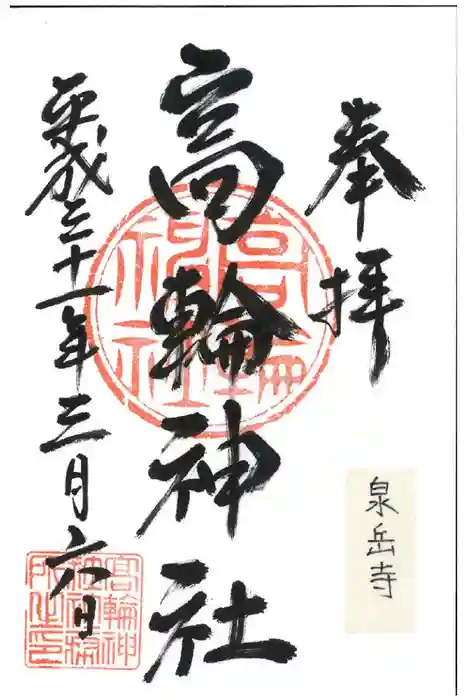 奉拝
泉岳寺
高輪神社
平成三十一年三月六日
高輪神社
高輪神社務所之印